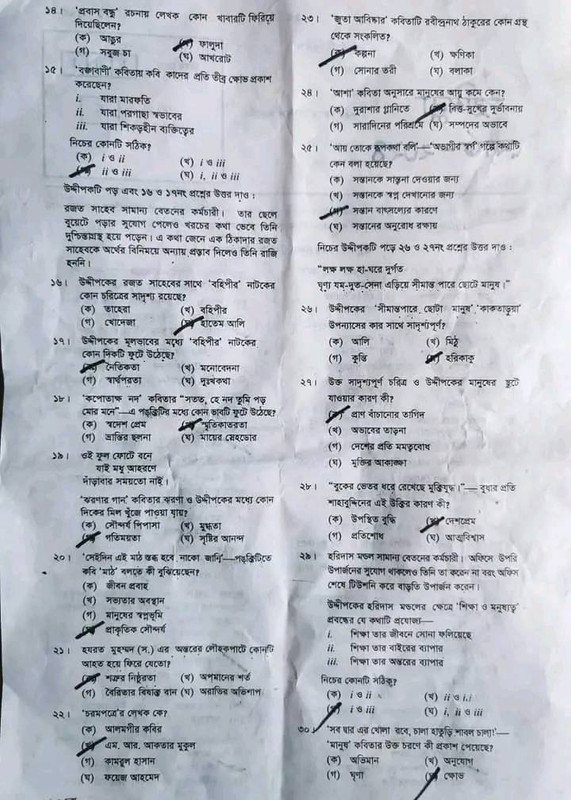 ১৪। 'প্রবাস বন্ধু' রচনায় লেখক কোন খাবারটি ফিরিয়ে
দিয়েছিলেন?
(ক) আঙুর (খ) ফালুদা
(গ) সবুজ চা (ঘ) আখরোট
১৫। 'বঙ্গবাণী' কবিতায় কবি কাদের প্রতি তীব্র ক্ষোভ প্রকাশ
করেছেন?
i. যারা মারফতি
ii. যারা পরগাছা স্বভাবের
iii. যারা শিকড়হীন ব্যক্তিত্বের
নিচের কোনটি সঠিক?
(ক) i ও ii (খ) i ও iii
(গ) ii ও iii (ঘ) i, ii ও iii
উদ্দীপকটি পড় এবং ১৬ ও ১৭নং প্রশ্নের উত্তর দাও :
রজত সাহেব সামান্য বেতনের কর্মচারী। তার ছেলে
বুয়েটে পড়ার সুযোগ পেলেও খরচের কথা ভেবে তিনি
দুশ্চিন্তাগ্রস্থ হয়ে পড়েন। এ কথা জেনে এক ঠিকাদার রজত
সাহেবকে অর্থের বিনিময়ে অন্যায় প্রস্তাব দিলেও তিনি রাজি
হননি।
১৬। উদ্দীপকের রজত সাহেবের সাথে 'বহিপীর' নাটকের
কোন চরিত্রের সাদৃশ্য রয়েছে?
(ক) তাহেরা (খ) বহিপীর
(গ) খোদেজা (ঘ) হাতেম আলি
১৭। উদ্দীপকের মূলভাবের মধ্যে 'বহিপীর' নাটকের
কোন দিকটি ফুটে উঠেছে?
(ক) নৈতিকতা (খ) মনোবেদনা
(গ) স্বার্থপরতা (ঘ) দুঃখকথা
১৮। 'কপোতাক্ষ নদ' কবিতার "সতত, হে নদ তুমি পড়
মোর মনে"—এ পঙ্‌ক্তিটির মধ্যে কোন ভাবটি ফুটে উঠেছে?
(ক) স্বদেশ প্রেম (খ) স্মৃতিকাতরতা
(গ) ভ্রান্তির ছলনা (ঘ) মায়ের স্নেহডোর
১৯। ওই ফুল ফোটে বনে
যাই মধু আহরণে
দাঁড়াবার সময়তো নাই।
'ঝরণার গান' কবিতার ঝরণা ও উদ্দীপকের মধ্যে কোন
দিকের মিল খুঁজে পাওয়া যায়?
(ক) সৌন্দর্য পিপাসা (খ) মুগ্ধতা
(গ) গতিময়তা (ঘ) সৃষ্টির আনন্দ
২০। 'সেইদিন এই মাঠ স্তব্ধ হবে নাকো জানি'—পঙ্‌ক্তিটিতে
কবি 'মাঠ' বলতে কী বুঝিয়েছেন?
(ক) জীবন প্রবাহ
(খ) সভ্যতার অবস্থান
(গ) মানুষের স্বপ্নভূমি
(ঘ) প্রাকৃতিক সৌন্দর্য
২১। হযরত মুহম্মদ (স.) এর অন্তরের লৌহকপাটে কোনটি
আহত হয়ে ফিরে যেতো?
(ক) শত্রুর নিষ্ঠুরতা (খ) অপমানের শর্ত
(গ) বৈরিতার বিষাক্ত বান (ঘ) অরাতির অভিশাপ
২২। 'চরমপত্রে'র লেখক কে?
(ক) আলমগীর কবির
(খ) এম. আর. আকতার মুকুল
(গ) কামরুল হাসান
(ঘ) ফয়েজ আহমেদ
২৩। 'জুতা আবিষ্কার' কবিতাটি রবীন্দ্রনাথ ঠাকুরের কোন গ্রন্থ
থেকে সংকলিত?
(ক) কল্পনা (খ) ক্ষণিকা
(গ) সোনার তরী (ঘ) বলাকা
২৪। 'আশা' কবিতা অনুসারে মানুষের আয়ু কমে কেন?
(ক) দুরাশার গ্লানিতে (খ) বিত্ত-সুখের দুর্ভাবনায়
(গ) সারাদিনের পরিশ্রমে (ঘ) সম্পদের অভাবে
২৫। 'আয় তোকে রূপকথা বলি'—'অভাগীর স্বর্গ' গল্পে কথাটি
কেন বলা হয়েছে?
(ক) সন্তানকে সান্ত্বনা দেওয়ার জন্য
(খ) সন্তানকে স্বপ্ন দেখানোর জন্য
(গ) সন্তান বাৎসল্যের কারণে
(ঘ) সন্তানের অনুরোধ রক্ষায়
নিচের উদ্দীপকটি পড়ে ২৬ ও ২৭নং প্রশ্নের উত্তর দাও :
"লক্ষ লক্ষ হা-ঘরে দুর্গত
ঘৃণ্য যম-দুত-সেনা এড়িয়ে সীমান্ত পারে ছোটে মানুষ।"
২৬। উদ্দীপকের 'সীমান্তপারে ছোটা মানুষ' 'কাকতাড়ুয়া'
উপন্যাসের কার সাথে সাদৃশ্যপূর্ণ?
(ক) আলি (খ) মিঠু
(গ) কুন্তি (ঘ) হরিকাকু
২৭। উক্ত সাদৃশ্যপূর্ণ চরিত্র ও উদ্দীপকের মানুষের ছুটে
যাওয়ার কারণ কী?
(ক) প্রাণ বাঁচানোর তাগিদ
(খ) অভাবের তাড়না
(গ) দেশের প্রতি মমত্ববোধ
(ঘ) মুক্তির আকাঙ্ক্ষা
২৮। "বুকের ভেতর ধরে রেখেছে মুক্তিযুদ্ধ।"— বুধার প্রতি
শাহাবুদ্দিনের এই উক্তির কারণ কী?
(ক) উপস্থিত বুদ্ধি (খ) দেশপ্রেম
(গ) প্রতিশোধ (ঘ) আত্মবিশ্বাস
২৯। হরিদাস মন্ডল সামান্য বেতনের কর্মচারী। অফিসে উপরি
উপার্জনের সুযোগ থাকলেও তিনি তা করেন না বরং অফিস
শেষে টিউশনি করে বাড়তি উপার্জন করেন।
উদ্দীপকের হরিদাস মন্ডলের ক্ষেত্রে 'শিক্ষা ও মনুষ্যত্ব'
প্রবন্ধের যে কথাটি প্রযোজ্য—
i. শিক্ষা তার জীবনে সোনা ফলিয়েছে
ii. শিক্ষা তার বাইরের ব্যাপার
iii. শিক্ষা তার অন্তরের ব্যাপার
নিচের কোনটি সঠিক?
(ক) i ও ii (খ) ii ও i.i
(গ) i ও iii (ঘ) i, ii ও iii
৩০। 'সব দ্বার এর খোলা রবে, চালা হাতুড়ি শাবল চালা!'—
'মানুষ' কবিতার উক্ত চরণে কী প্রকাশ পেয়েছে?
(ক) অভিমান (খ) অনুযোগ
(গ) ঘৃণা (ঘ) ক্ষোভ